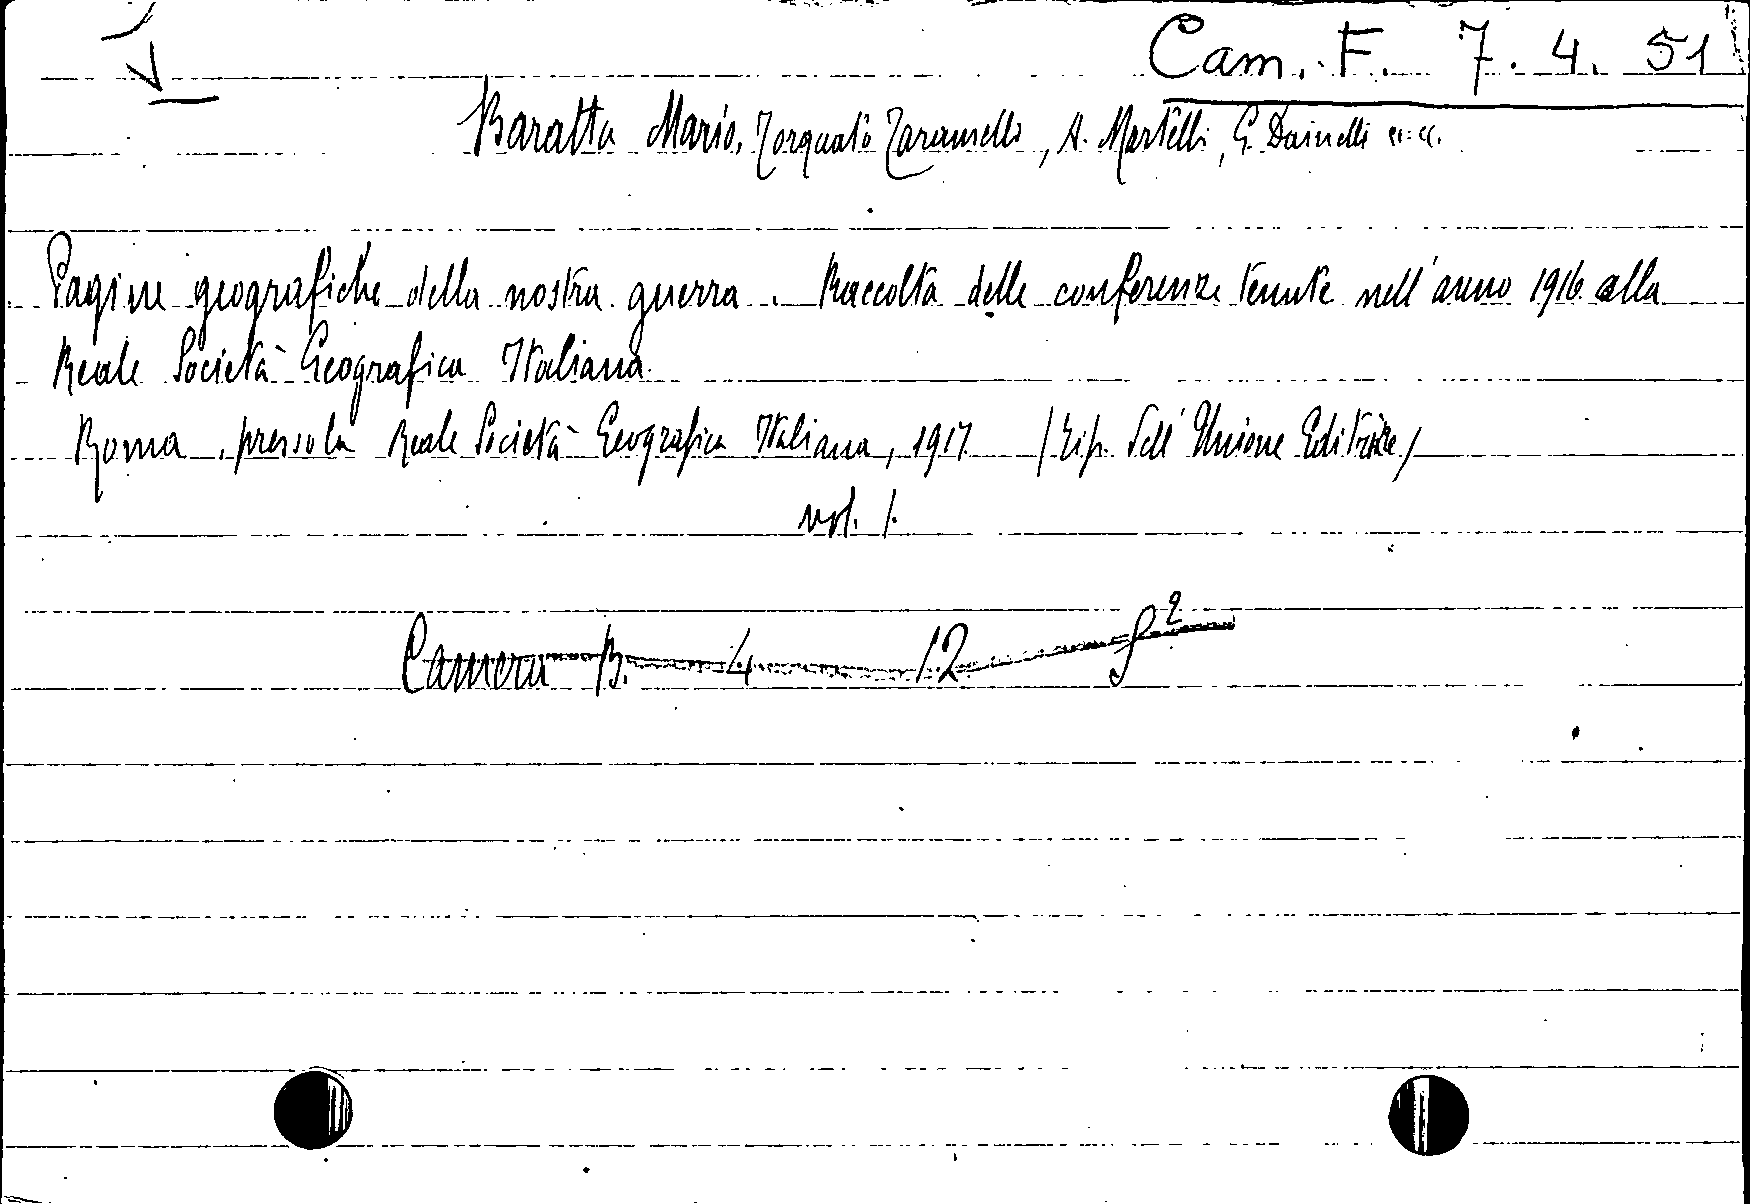 Cam. F. 7. 4. 51
Baratta Mario, Torquato Taramelli, A. Martelli, G. Dainelli ecc.
Pagine geografiche della nostra guerra. Raccolta delle conferenze tenute nell'anno 1916 alla
Reale Società Geografica Italiana.
Roma, presso la Reale Società Geografica Italiana, 1917 /Tip. dell'Unione Editrice/
vol. 1.
Camera B. 4 12 f²